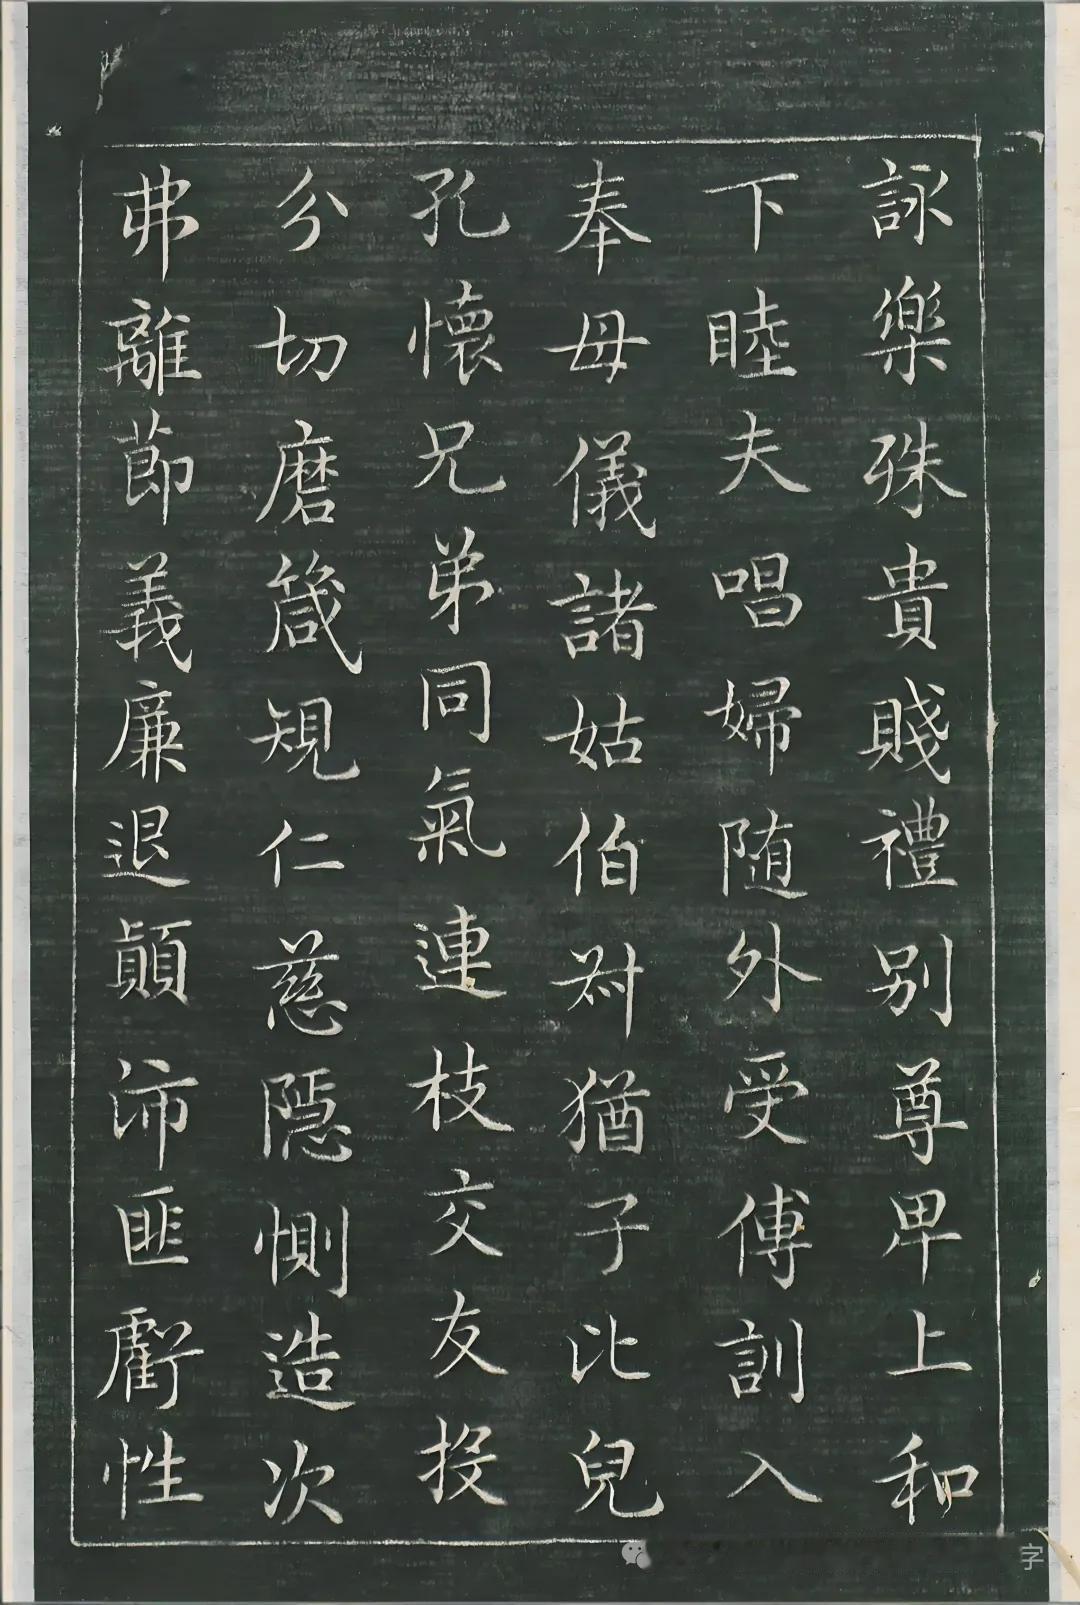 詠樂殊貴賤禮别尊卑上和
下睦夫唱婦随外受傅訓入
奉母儀諸姑伯叔猶子比兒
孔懷兄弟同氣連枝交友投
分切磨箴規仁慈隱惻造次
弗離節義廉退顛沛匪虧性
字